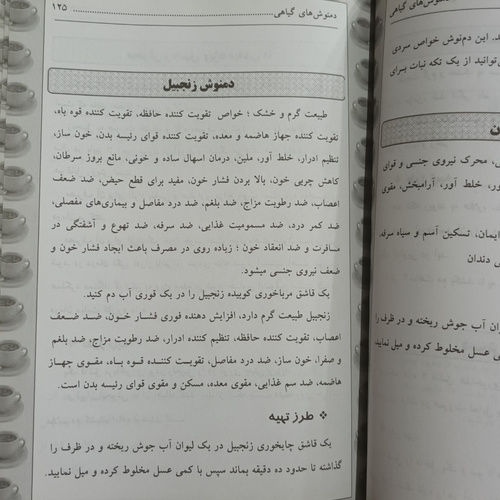 دمنوش‌های گیاهی ........................ ۱۲۵
دمنوش زنجبیل
طبیعت گرم و خشک ؛ خواص تقویت کننده حافظه، تقویت کننده قوه باه،
تقویت کننده جهاز هاضمه و معده، تقویت کننده قوای رئیسه بدن، خون ساز،
تنظیم ادرار، خلط آور، ملین، درمان اسهال ساده و خونی، مانع بروز سرطان،
کاهش چربی خون، بالا بردن فشار خون، مفید برای قطع حیض، ضد ضعف
اعصاب، ضد رطوبت مزاج، ضد بلغم، ضد درد مفاصل و بیماری‌های مفصلی،
ضد کمر درد، ضد مسمومیت غذایی، ضد سرفه، ضد تهوع و آشفتگی در
مسافرت و ضد انعقاد خون ؛ زیاده روی در مصرف باعث ایجاد فشار خون و
ضعف نیروی جنسی میشود.
یک قاشق مرباخوری کوبیده زنجبیل را در یک قوری آب دم کنید.
زنجبیل طبیعت گرم دارد، افزایش دهنده فوری فشار خون، ضد ضعف
اعصاب، تقویت کننده حافظه، تنظیم کننده ادرار، ضد رطوبت مزاج، ضد بلغم
و صفرا، خون ساز، ضد درد مفاصل، تقویت کننده قوه باه، مقوی جهاز
هاضمه، ضد سم غذایی، مقوی معده، مسکن و مقوی قوای رئیسه بدن است.
❖ طرز تهیه
یک قاشق چایخوری زنجبیل در یک لیوان آب جوش ریخته و در ظرف را
گذاشته تا حدود ده دقیقه بماند سپس با کمی عسل مخلوط کرده و میل نمایید.
های گیاهی
د. این دم‌نوش خواص سردی
توانید از یک تکه نبات برای
ن
محرک نیروی جنسی و قوای
ور، خلط آور، آرامبخش، مقوی
ایمان، تسکین آسم و سیاه سرفه
ی دندان
وان آب جوش ریخته و در ظرف را
ی عسل مخلوط کرده و میل نمایید